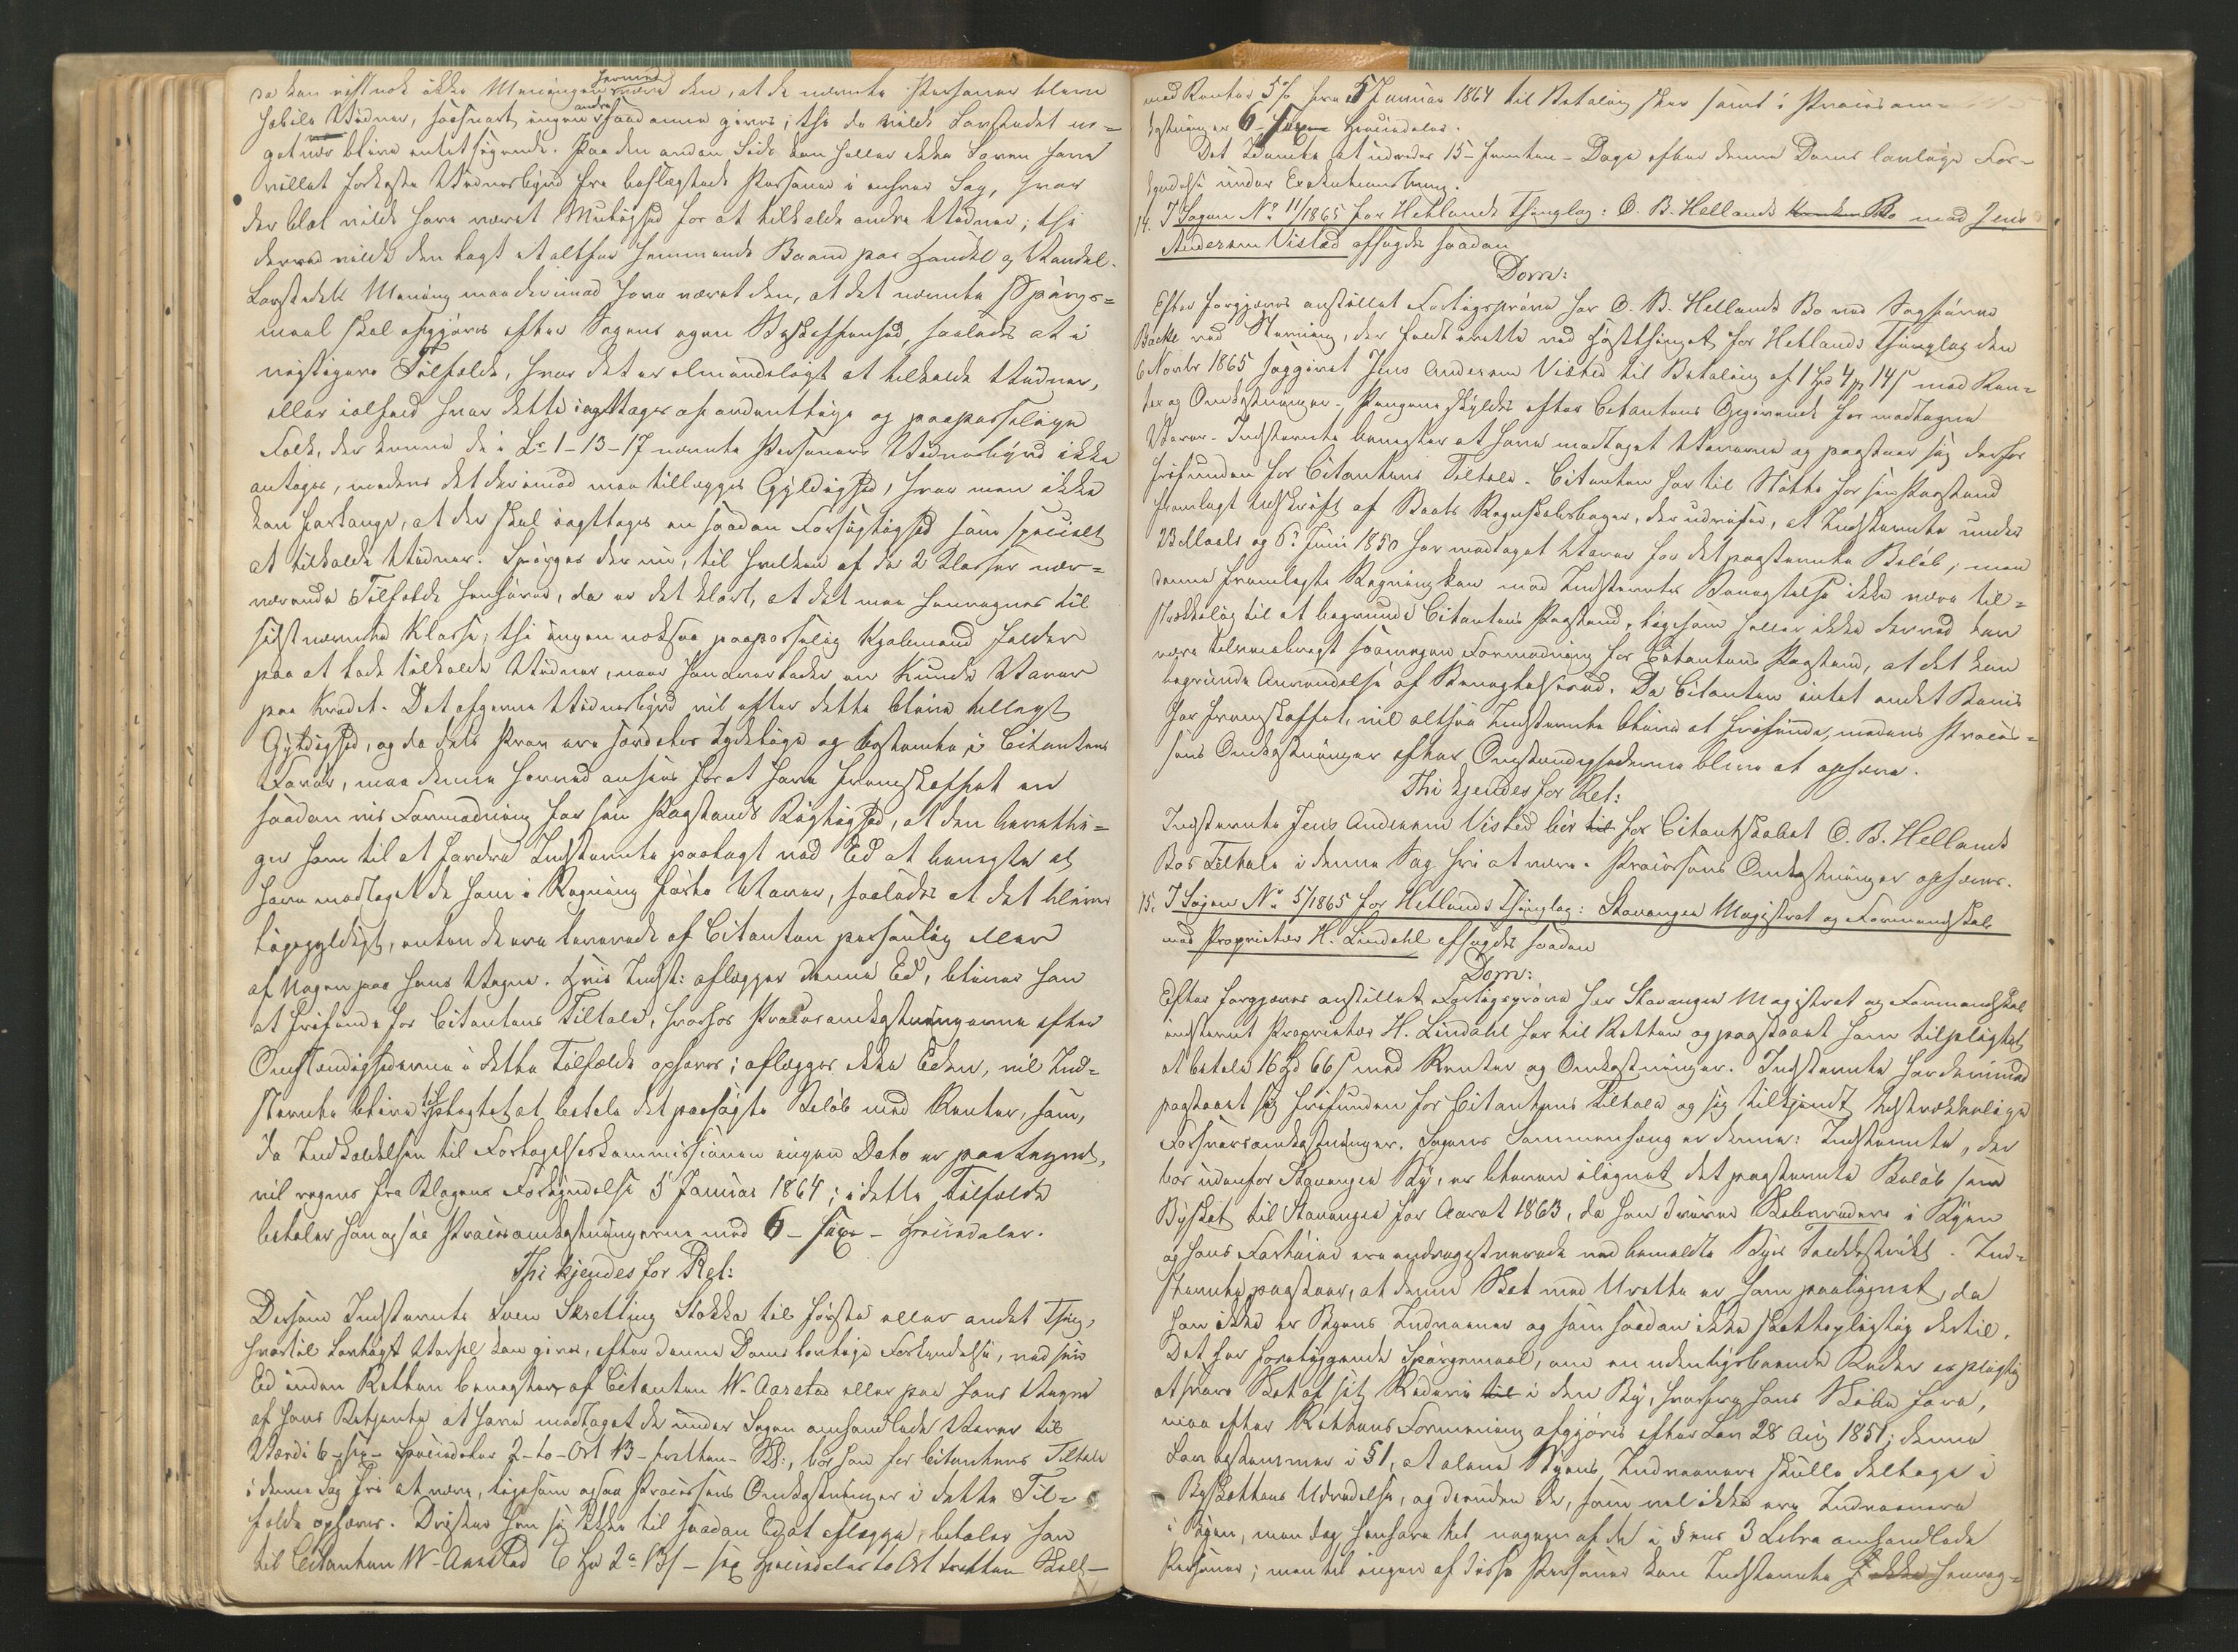 da kan vistnok ikke Meningen være den, at de nævnte Personer bleve
herved
habile Vidner, saasnart ingen andre saadanne gives; thi da vilde Lovbudet no-
get nær blive intetsigende. Paa den anden Side kan heller ikke Loven have
villet forkaste Vidnesbyrd fra beslægtede Personer i enhver Sag, hvor
der blot vilde have været Mulighed for at tilkalde andre Vidner; thi
derved vilde den lagt et altfor hemmende Baand paa Handel og Vandel.
Lovstedets Mening maa derimod have været den, at det nævnte Spørgs-
maal skal afgjøres efter Sagens egen Beskaffenhed, saaledes at i
vigtigere Tilfælde, hvor det er almindeligt at tilkalde Vidner,
eller ialfald hvor dette iagttages af ordentlige og paapasselige
Folk, der kunne de i L: 1-13-17 nævnte Personers Vidnesbyrd ikke
antages, medens det derimod maa tillægges Gyldighed, hvor man ikke
kan forlange, at der skal iagttages en saadan Forsigtighed som specielt
at tilkalde Vidner. Spørges der nu, til hvilken af de 2 Klasser nær-
værende Tilfælde henhører, da er det klart, at det maa henregnes til
sidstnævnte Klasse; thi ingen nok saa paapasselig Kjøbmand falder
paa at lade tilkalde Vidner, naar han overlader en Kunde Varer
paa Kredit. Det afgivne Vidnesbyrd vil efter dette blive tillagt
Gyldighed, og da dets Svar ere særdeles tydelige og bestemte i Citantens
Favør, maa denne herved ansees for at have fremskaffet en
saadan vis Formodning for sin Paastands Rigtighed, at den beretti-
ger ham til at fordre Indstævnte paalagt ved Ed at benegte at
have modtaget de ham i Regning førte Varer, saaledes at det bliver
ligegyldigt, enten de ere leverede af Citanten personlig eller
af Nogen paa hans Vegne. Hvis Indst: aflægger denne Ed, bliver han
at frifinde for Citantens Tiltale, hvorhos Procesomkostningerne efter
Omstændighederne i dette Tilfælde ophæves; aflægges ikke Eden, vil Ind-
stævnte blive tilpligtet at betale det paasøgte Beløb med Renter, som,
da Indkaldelsen til Forligelseskommissionen ingen Dato er paategnet,
vil regnes fra Klagens Forkyndelse 5 Januar 1864; i dette Tilfælde
betaler han ogsaa Procesomkostningerne med 6 - sex - Speciedaler.
Thi kjendes for Ret:
Dersom Indstævnte Sven Skretting Stokka til første eller andet Thing,
hvortil lovligt Varsel kan gives, efter denne Doms lovlige Forkyndelse, ved sin
Ed inden Retten benegter af Citanten W. Aarstad eller paa hans Vegne
af hans Betjente at have modtaget de under Sagen omhandlede Varer til
Værdi 6 - sex - Speciedaler 2 - to - Ort 13 - tretten - Sk:, bør han for Citantens Tiltale
i denne Sag fri at være, ligesom ogsaa Processens Omkostninger i dette Til-
fælde ophæves. Drister han sig ikke til saadan Ed at aflægge, betaler han
til Citanten W. Aarstad 6 Spd 2 # 13 s - sex Speciedaler to Ort tretten Skill -
med Renter 5% fra 5 Januar 1864 til Betaling sker samt i Procesom-
kostninger 6 - sex - Speciedaler.
Det Idømte at udredes 15 - femten - Dage efter denne Doms lovlige For-
kyndelse under Exekutionstvang.
14. I Sagen No 11/1865 for Hetlands Thinglag: O. B. Hellands Bo mod Jens
Andersen Visted afsagdes saadan
Dom:
Efter forgjæves anstillet Forligsprøve har O. B. Hellands Bo ved Sagfører
Backe ved Stævning, der faldt irette ved Høstthinget for Hetlands Thinglag den
6 Novbr 1865 saggivet Jens Andersen Visted til Betaling af 1 Spd 4 # 14 s med Ren-
ter og Omkostninger. Pengene skyldes efter Citantens Opgivende for modtagne
Varer. Indstævnte benegter at have modtaget Varerne og paastaar sig derfor
frifunden for Citantens Tiltale. Citanten har til Støtte for sin Paastand
fremlagt Udskrift af Boets Regnskabsbøger, der udviser, at Indstævnte under
23 Marts og 6 Juni 1850 har modtaget Varer for det paastævnte Beløb; men
denne fremlagte Regning kan mod Indstævntes Benegtelse ikke være til-
strækkelig til at begrunde Citantens Paastand, ligesom heller ikke derved kan
være tilveiebragt saamegen Formodning for Citantens Paastand, at det kan
begrunde Anvendelse af Benegtelsesed. Da Citanten intet andet Bevis
har fremskaffet, vil altsaa Indstævnte blive at frifinde, medens Proces-
sens Omkostninger efter Omstændighederne blive at ophæve.
Thi kjendes for Ret:
Indstævnte Jens Andersen Visted bør til for Citantskabet O. B. Hellands
Bos Tiltale i denne Sag fri at være. Processens Omkostninger ophæves.
15. I Sagen No 5/1865 for Hetlands Thinglag: Stavanger Magistrat og Formandskab
mod Proprietær H. Lindahl afsagdes saadan
Dom:
Efter forgjæves anstillet Forligsprøve har Stavanger Magistrat og Formandskab
indstævnt Proprietær H. Lindahl her til Retten og paastaaet ham tilpligtet
at betale 16 Spd 66 s med Renter og Omkostninger. Indstævnte har derimod
paastaaet sig frifunden for Citantens Tiltale og sig tilkjendt tilstrækkelige
Forsvarsomkostninger. Sagens Sammenhæng er denne: Indstævnte, der
bor udenfor Stavanger By, er bleven ilignet det paastævnte Beløb som
Byskat til Stavanger for Aaret 1863, da han driver Skibsrederi i Byen
og hans Fartøier ere indregistrerede ved bemeldte Byes Tolddistrikt. Ind-
stævnte paastaar, at denne Skat med Urette er ham paalignet, da
han ikke er Byens Indvaaner og som saadan ikke skattepligtig dertil.
Det her foreliggende Spørgsmaal, om en udenbysboende Reder er pligtig
at svare Skat af sit Rederi til i den By, hvorfra hans Skibe fare,
maa efter Rettens Formening afgjøres efter Lov 28 Aug 1851; denne
Lov bestemmer i § 1, at alene Byens Indvaanere skulle deltage i
Byskattens Udredelse, og desuden de, som vel ikke ere Indvaanere
i Byen, men dog henhøre til nogen af de i §ens 3 Litra omhandlede
Personer; men til ingen af disse Personer kan Indstævnte ikke henreg-